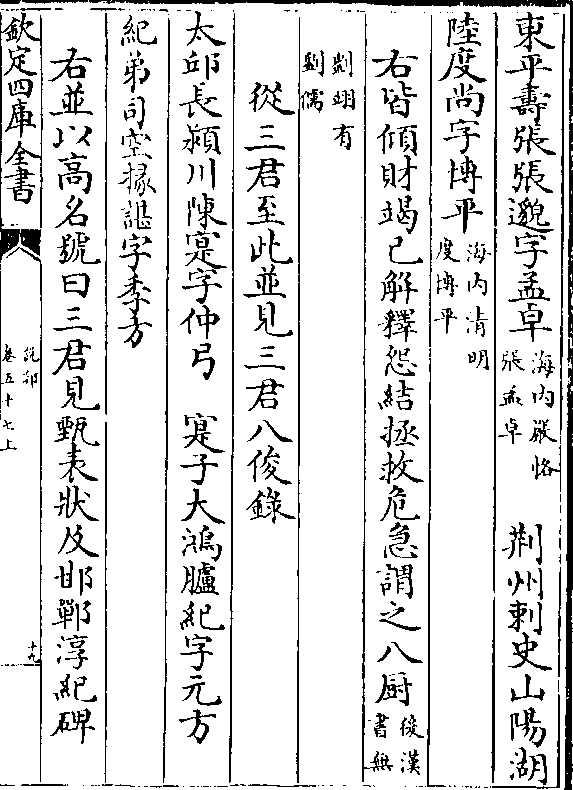 東平壽張張邈字孟卓海内嚴恪張孟卓　荆州刺史山陽湖
陸度尚字博平海内清明度博平
右皆傾財竭已解釋怨結拯救危急謂之八厨後漢書無
劉翊有劉儒
從三君至此並見三君八俊錄
太邱長潁川陳寔字仲弓　寔子大鴻臚紀字元方
紀弟司空掾諶字季方
右並以高名號曰三君見甄表狀及邯鄲淳紀碑
欽定四庫全書
說郛
卷五十七上
十九